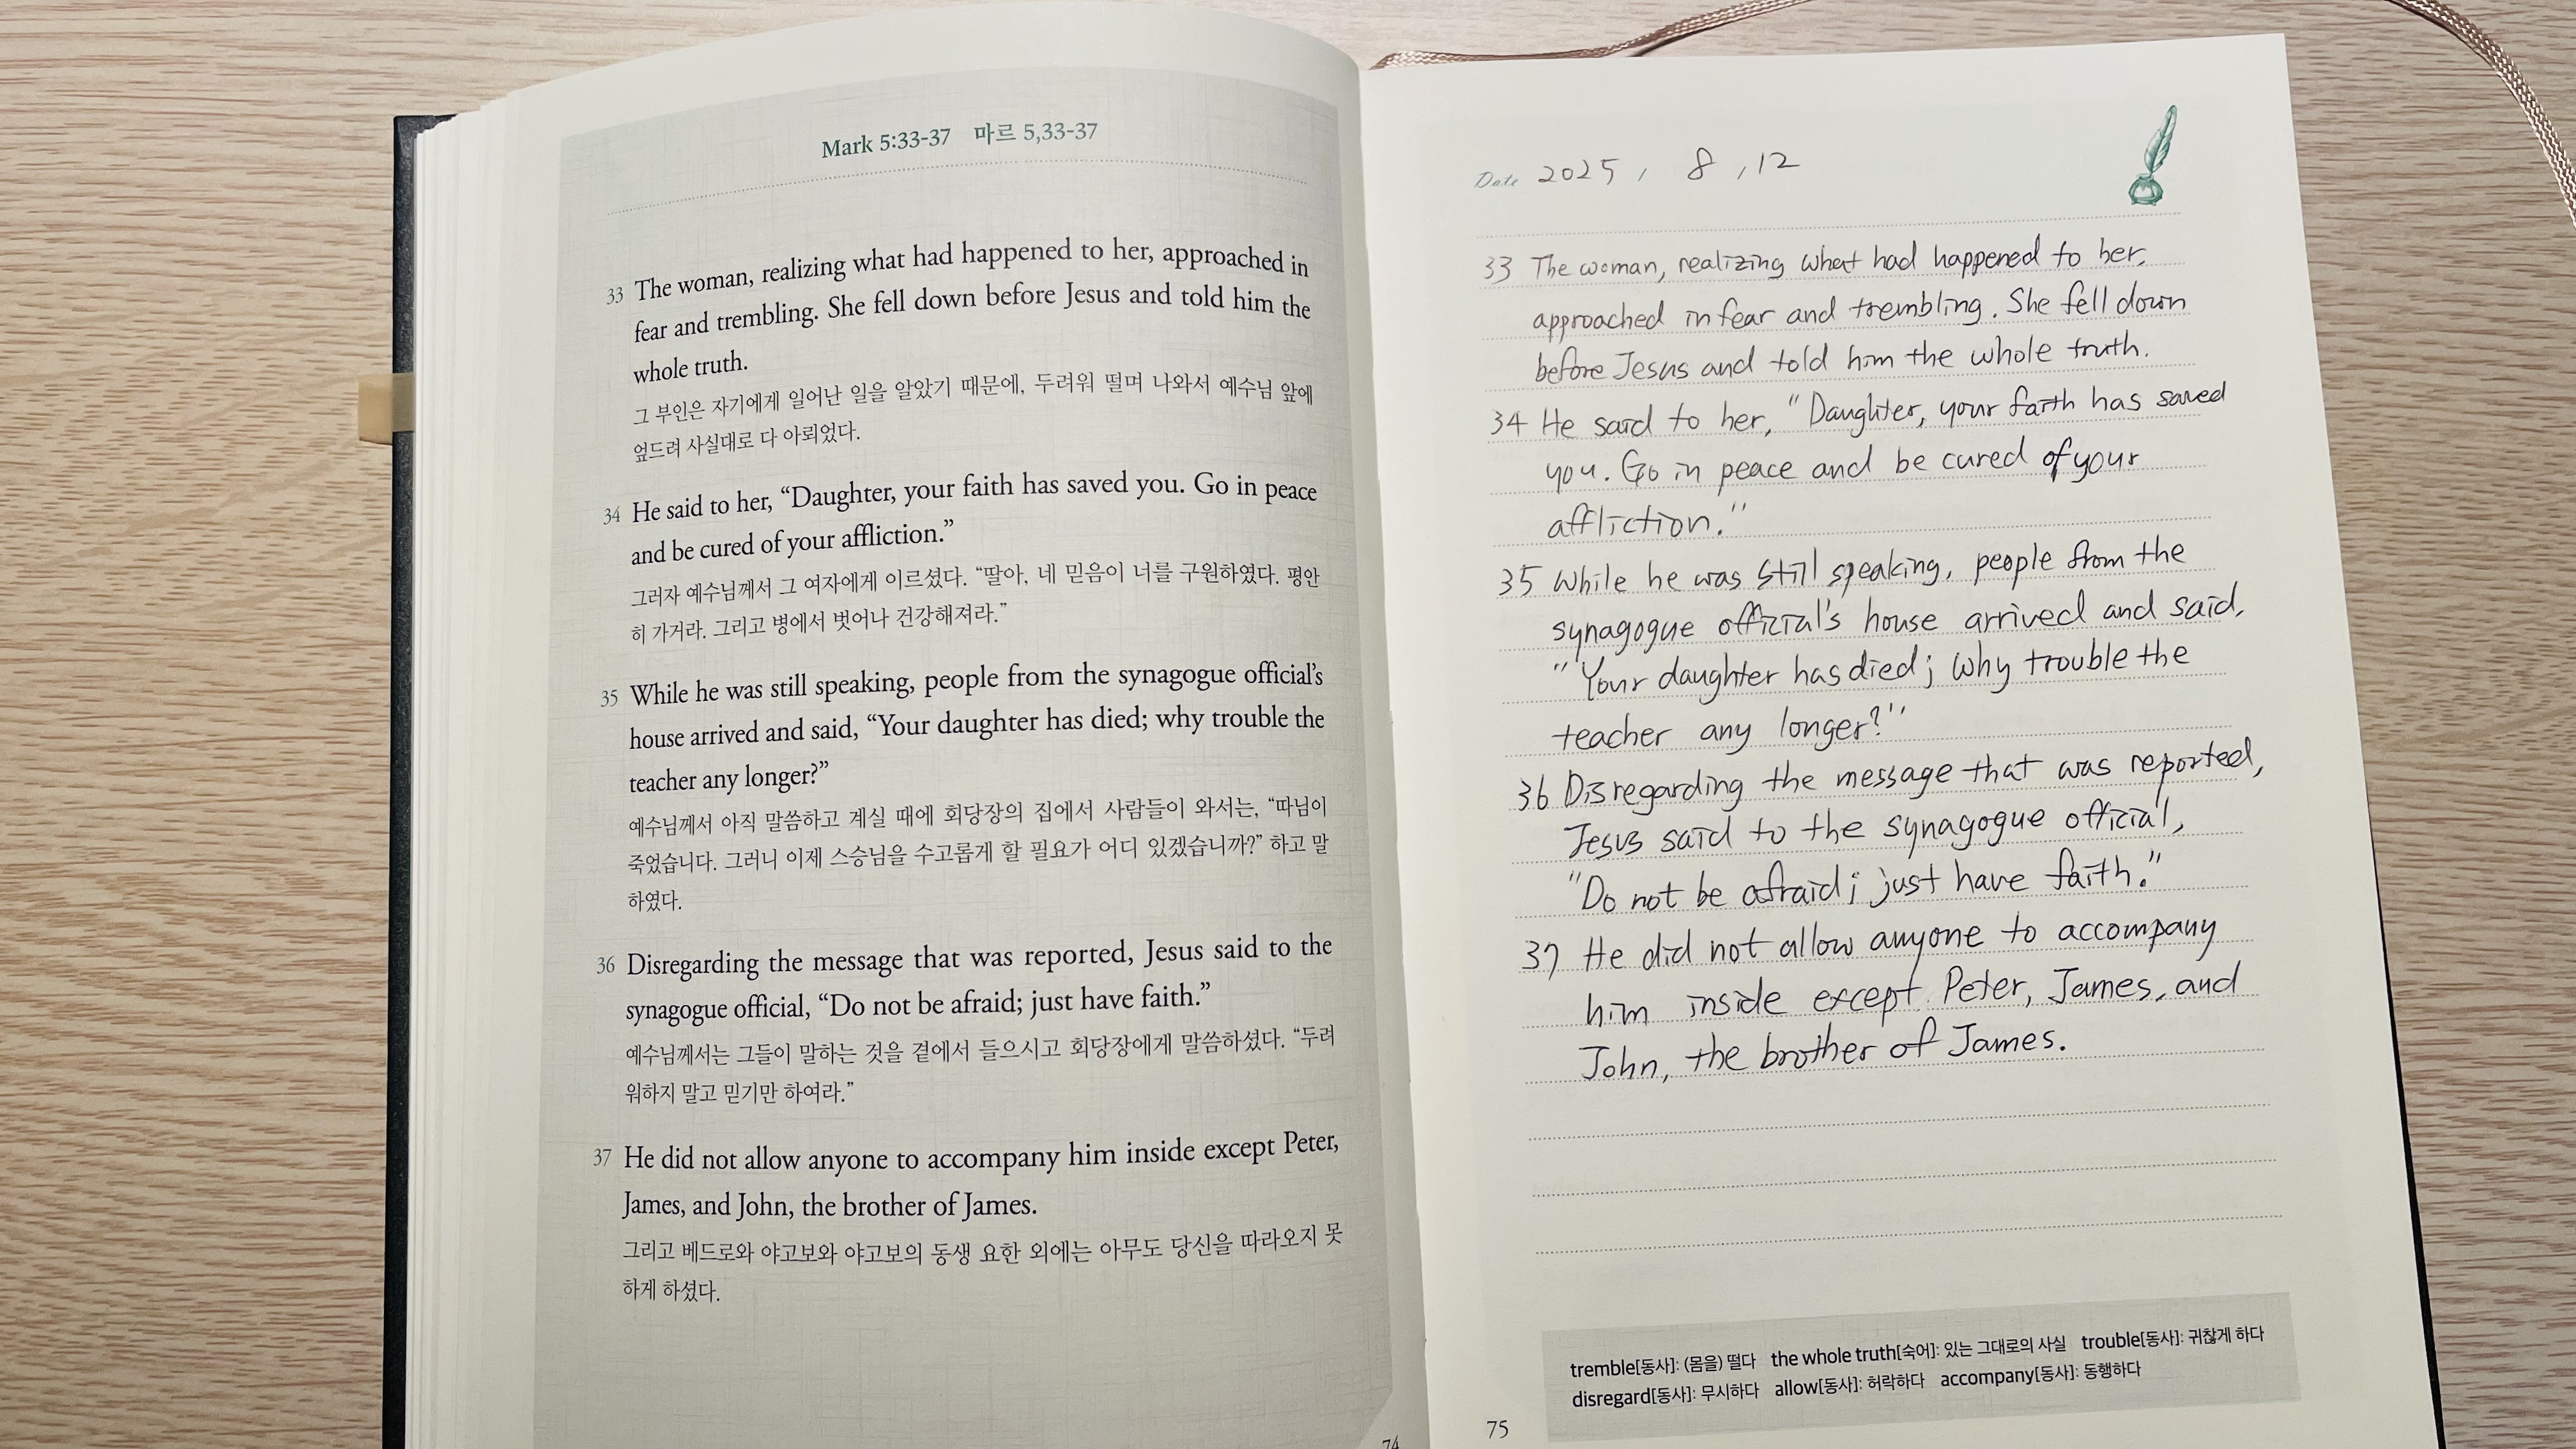 Mark 5:33-37 마르 5,33-37
33 The woman, realizing what had happened to her, approached in
fear and trembling. She fell down before Jesus and told him the
whole truth.
그 부인은 자기에게 일어난 일을 알았기 때문에, 두려워 떨며 나와서 예수님 앞에
엎드려 사실대로 다 아뢰었다.
34 He said to her, “Daughter, your faith has saved you. Go in peace
and be cured of your affliction.”
그러자 예수님께서 그 여자에게 이르셨다. “딸아, 네 믿음이 너를 구원하였다. 평안
히 가거라. 그리고 병에서 벗어나 건강해져라.”
35 While he was still speaking, people from the synagogue official’s
house arrived and said, “Your daughter has died; why trouble the
teacher any longer?”
예수님께서 아직 말씀하고 계실 때에 회당장의 집에서 사람들이 와서는, “따님이
죽었습니다. 그러니 이제 스승님을 수고롭게 할 필요가 어디 있겠습니까?” 하고 말
하였다.
36 Disregarding the message that was reported, Jesus said to the
synagogue official, “Do not be afraid; just have faith.”
예수님께서는 그들이 말하는 것을 곁에서 들으시고 회당장에게 말씀하셨다. “두려
워하지 말고 믿기만 하여라.”
37 He did not allow anyone to accompany him inside except Peter,
James, and John, the brother of James.
그리고 베드로와 야고보와 야고보의 동생 요한 외에는 아무도 당신을 따라오지 못
하게 하셨다.
74
Date 2025, 8, 12
33 The woman, realizing what had happened to her,
approached in fear and trembling. She fell down
before Jesus and told him the whole truth.
34 He said to her, "Daughter, your faith has saved
you. Go in peace and be cured of your
affliction."
35 While he was still speaking, people from the
synagogue official's house arrived and said,
"Your daughter has died; why trouble the
teacher any longer?"
36 Disregarding the message that was reported,
Jesus said to the synagogue official,
"Do not be afraid; just have faith."
37 He did not allow anyone to accompany
him inside except Peter, James, and
John, the brother of James.
tremble[동사]: (몸을) 떨다 the whole truth[숙어]: 있는 그대로의 사실 trouble[동사]: 귀찮게 하다
disregard[동사]: 무시하다 allow[동사]: 허락하다 accompany[동사]: 동행하다
75